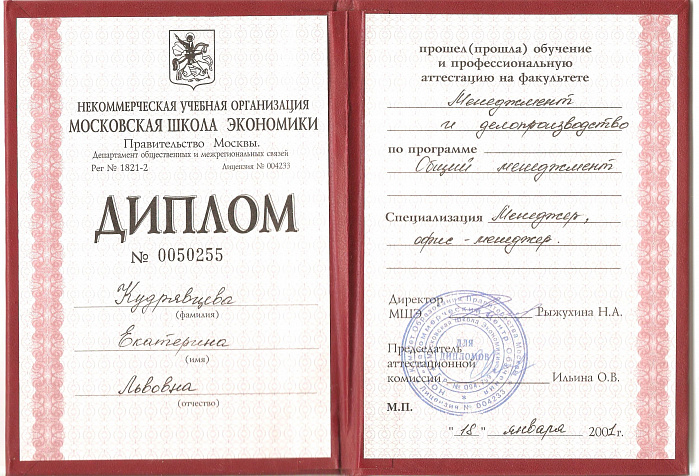 НЕКОММЕРЧЕСКАЯ УЧЕБНАЯ ОРГАНИЗАЦИЯ
МОСКОВСКАЯ ШКОЛА ЭКОНОМИКИ
Правительство Москвы.
Департамент общественных и межрегиональных связей
Рег № 1821-2 Лицензия № 004233
ДИПЛОМ
№ 0050255
Кудрявцева
(фамилия)
Екатерина
(имя)
Львовна
(отчество)
прошел(прошла) обучение
и профессиональную
аттестацию на факультете
Менеджмент
и делопроизводство
по программе
Общий менеджмент
Специализация Менеджер,
офис - менеджер.
Директор
МШЭ Рыжухина Н.А.
Председатель
аттестационной
комиссии Ильина О.В.
М.П.
"18" января 2001г.
ДЛЯ
ДИПЛОМОВ
Лицензия № 004233